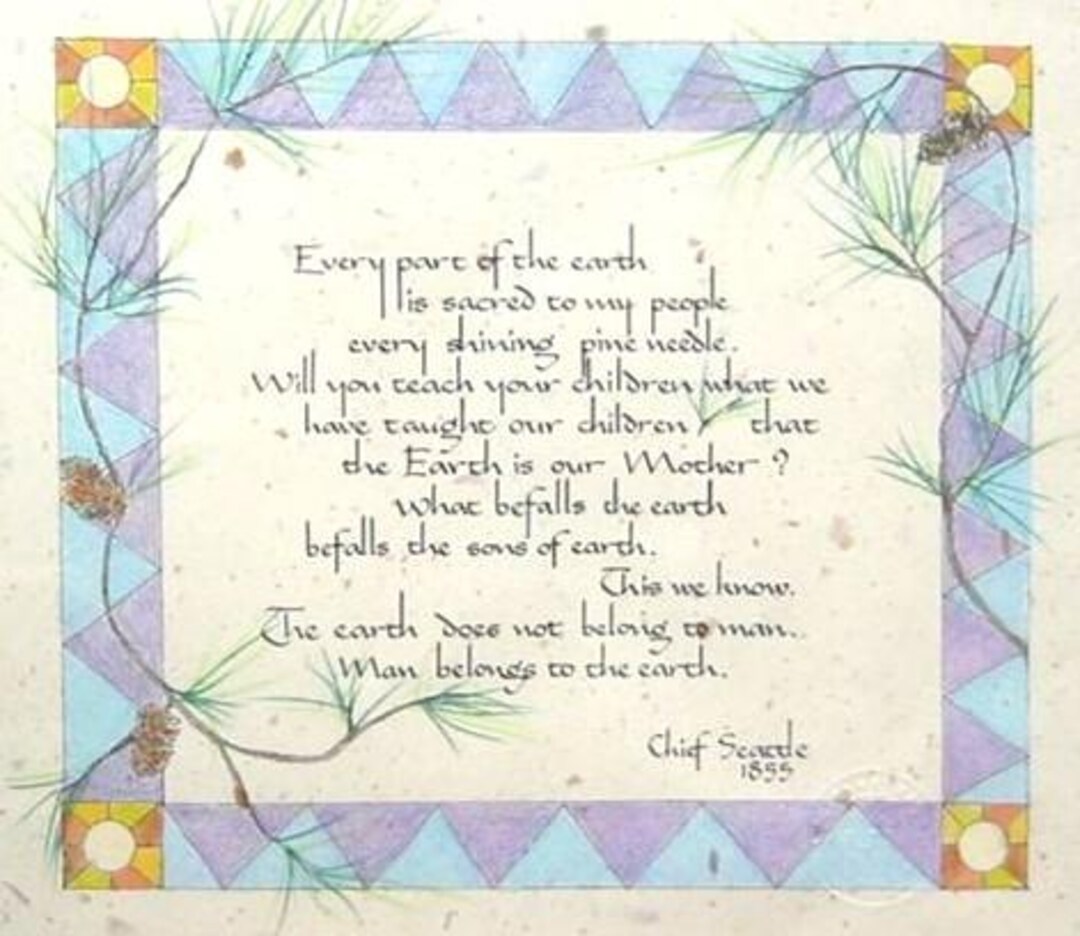 Every part of the earth
is sacred to my people
every shining pine needle.
Will you teach your children what we
have taught our children that
the Earth is our Mother ?
What befalls the earth
befalls the sons of earth.
This we know.
The earth does not belong to man.
Man belongs to the earth.
Chief Seattle
1855